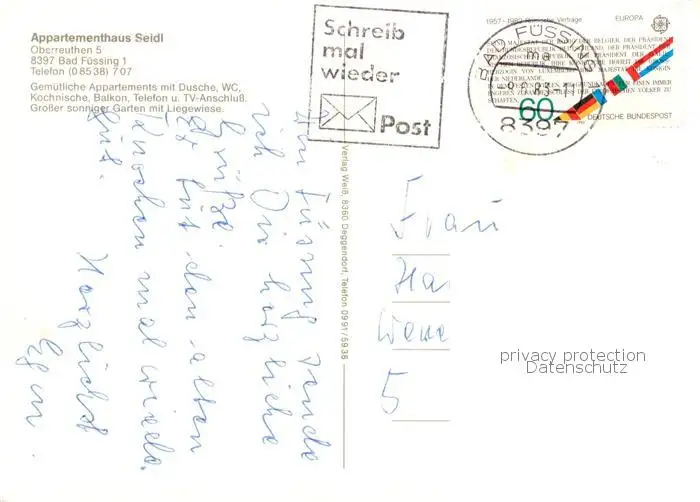 Appartementhaus Seidl
Oberreuthen 5
8397 Bad Füssing 1
Telefon (08538) 707
Gemütliche Appartements mit Dusche, WC,
Kochnische, Balkon, Telefon u. TV-Anschluß.
Großer sonniger Garten mit Liegewiese.
Schreib
mal
wieder
Post
BAD FÜSSING
8397
1957-1982 Römische Verträge
EUROPA
60
DEUTSCHE BUNDESPOST
Verlag Weiß, 8360 Deggendorf, Telefon 0991/5936
Füssing sende
ich Dir herzliche
Grüße.
Es tut den alten
Knochen mal wieder
gut.
Herzlichst
Frau
5
privacy protection
Datenschutz